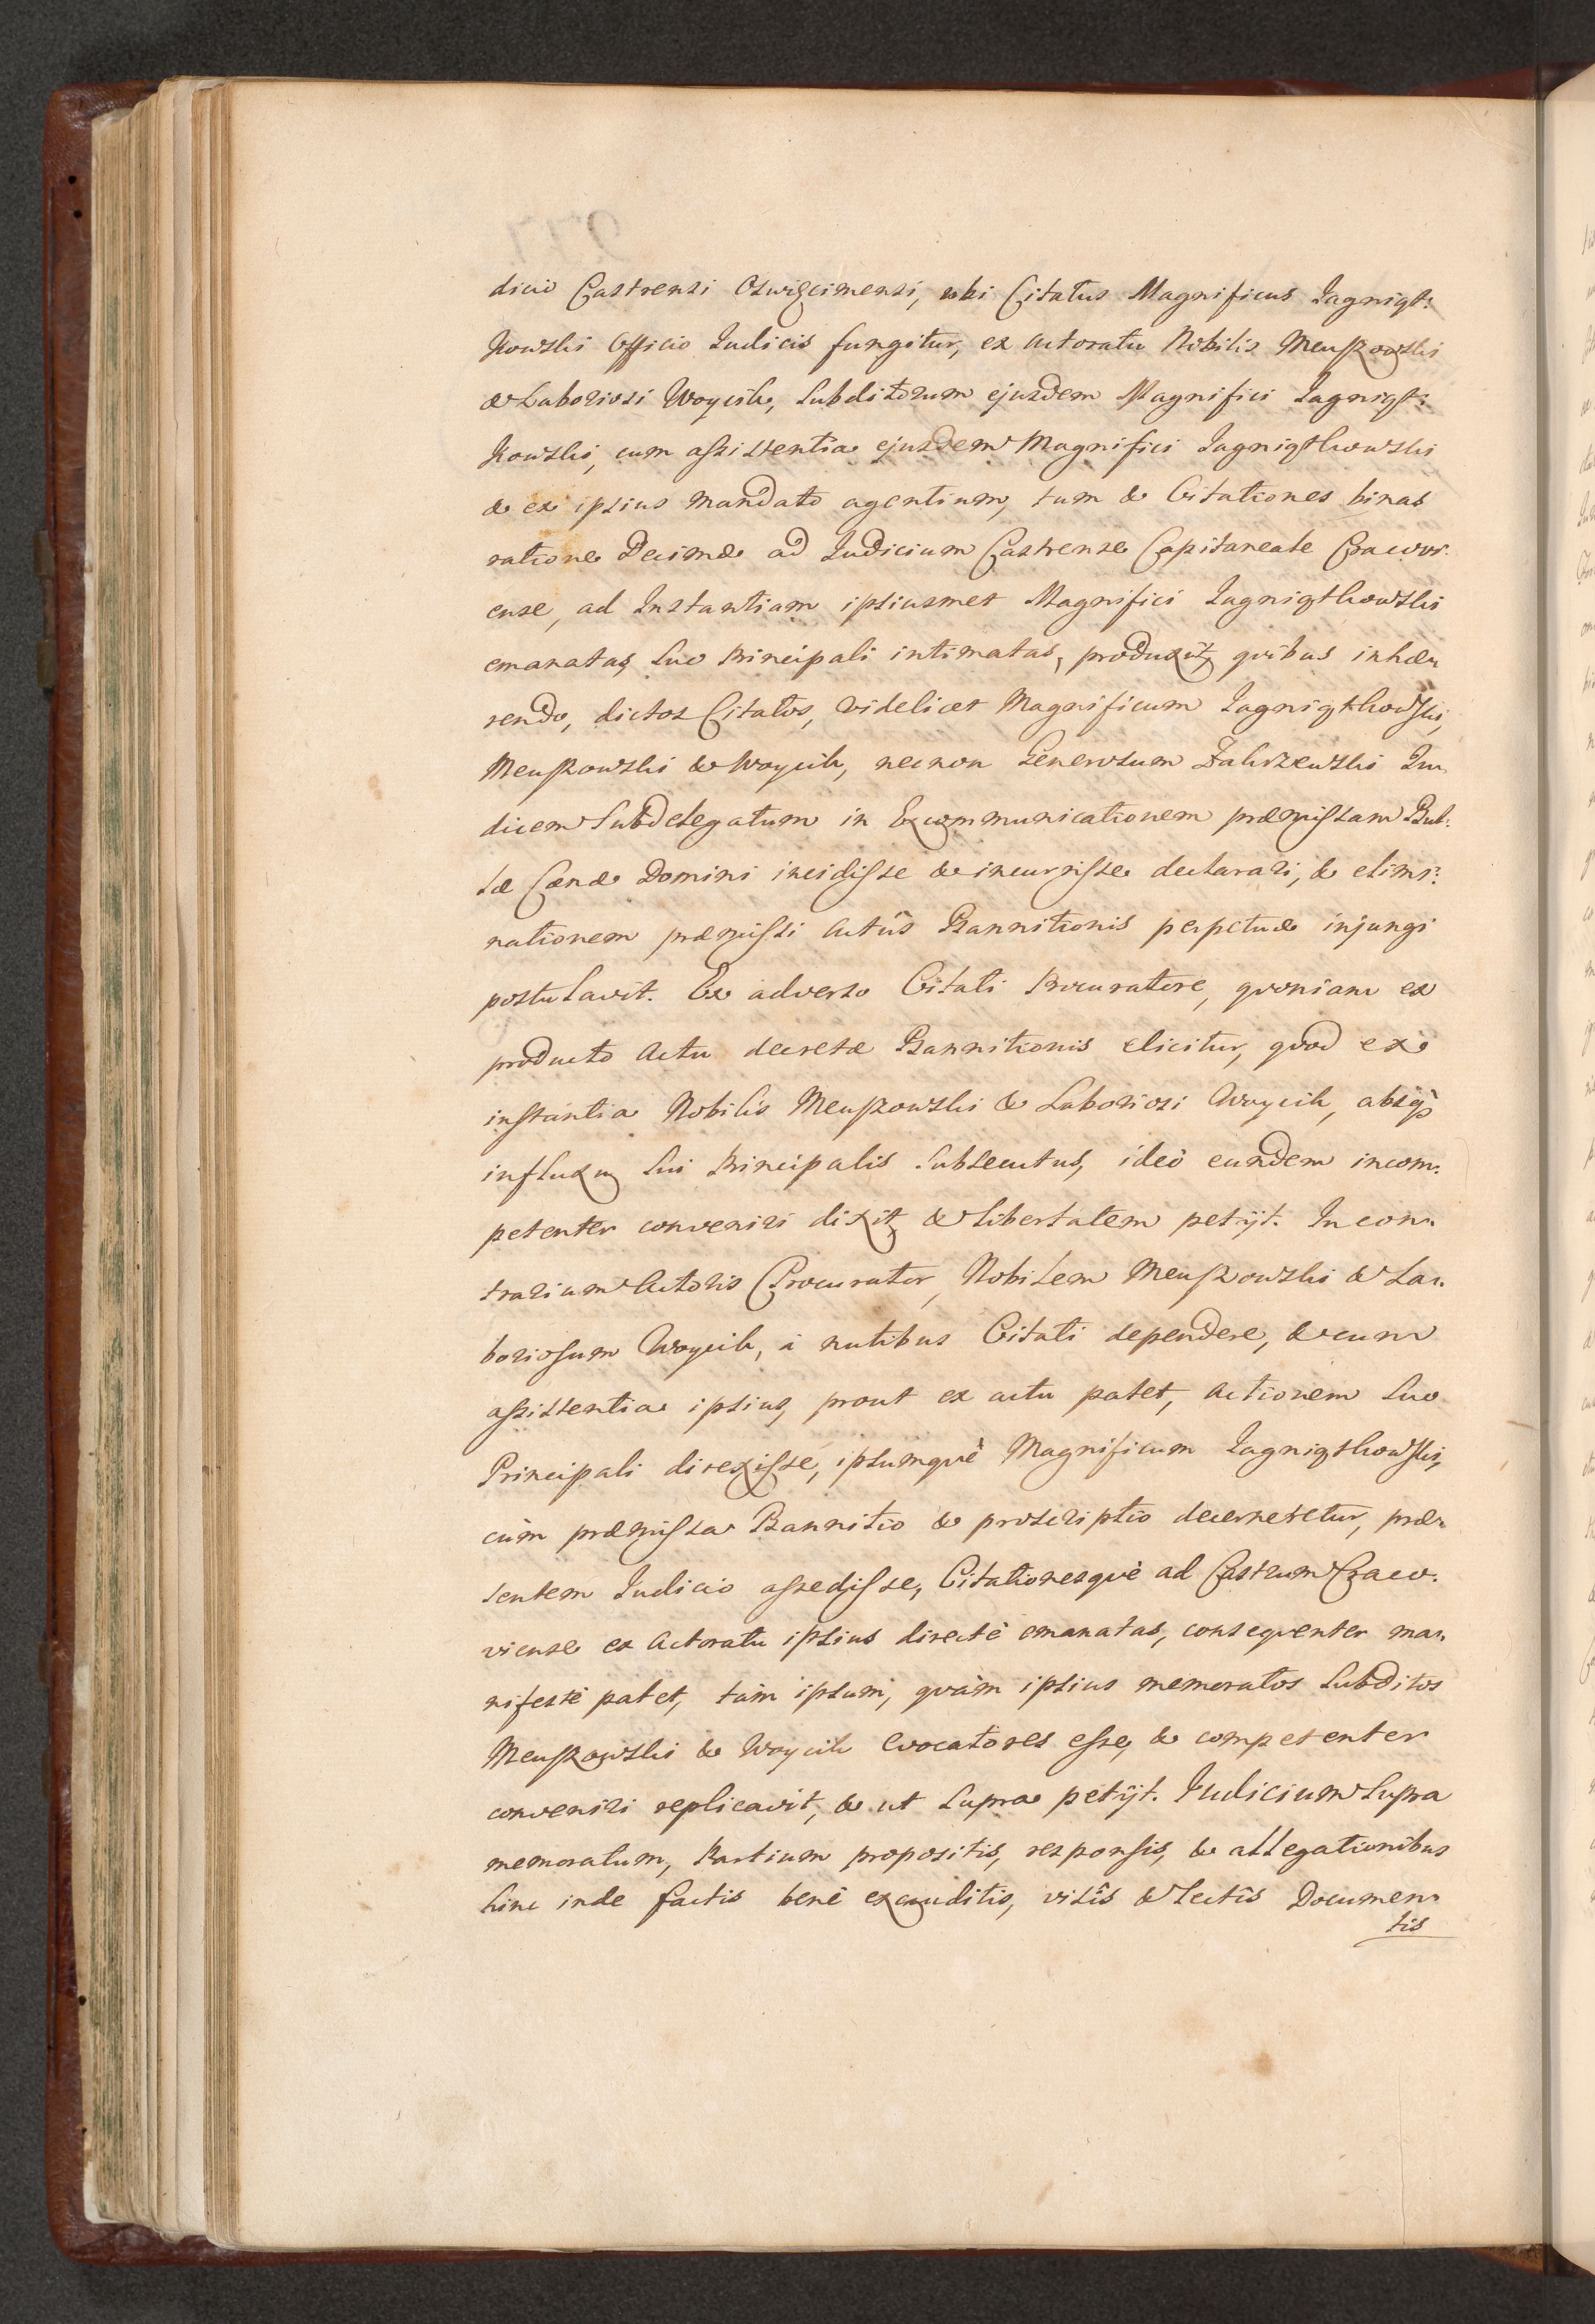 dicio Castrensi Oswięcimensi, ubi Citatus Magnificus Jagnięt:
kowski Officio Judicis fungitur, ex Actoratu Nobilis Meuszowski
& Laboriosi Woycik, Subditorum ejusdem Magnifici Jagnięt:
kowski, cum assistentia ejusdem Magnifici Jagniętkowski
& ex ipsius mandato agentium, tum & Citationes binas
ratione Decimæ ad Judicium Castrense Capitaneale Cracovi:
ense, ad Instantiam ipsiusmet Magnifici Jagniętkowski
emanatas, Suo Principali intimatas, produxit, quibus inhæ:
rendo, dictos Citatos, videlicet Magnificum Jagniętkowski,
Meuszowski & Woycik, necnon Generosum Zakrzewski Ju:
dicem Subdelegatum in Excommunicationem præmissam Bul:
læ Cænæ Domini incidisse & incurrisse declarari, & elimi:
nationem præmissi Actûs Bannitionis perpetuæ injungi
postulavit. Ex adverso Citati Procuratore, quoniam ex
producto Actu decretæ Bannitionis elicitur, quod ex
instantia Nobilis Meuszowski & Laboriosi Woycik, absq3
influxu Sui Principalis Subsecutus, ideò eundem incom:
petenter conveniri dixit & libertatem petijt. In con:
trarium Actoris Procurator, Nobilem Meuszowski & La:
boriosum Woycik, à nutibus Citati dependere, & cum
assistentia ipsius, prout ex actu patet, Actionem Suo
Principali direxisse, ipsumquè Magnificum Jagniętkowski,
cùm præmissa Bannitio & proscriptio decerneretur, præ:
sentem Judicio assedisse, Citationesquè ad Castrum Craco:
viense ex Actoratu ipsius directè emanatas, consequenter ma:
nifestè patet, tàm ipsum, quàm ipsius memoratos Subditos
Meuszowski & Woycik Evocatores esse, & competenter
conveniri replicavit, & ut Supra petijt. Judicium Supra
memoratum, Partium propositis, responsis, & allegationibus
hinc inde factis benè exauditis, visîs & lectîs Documen:
tis